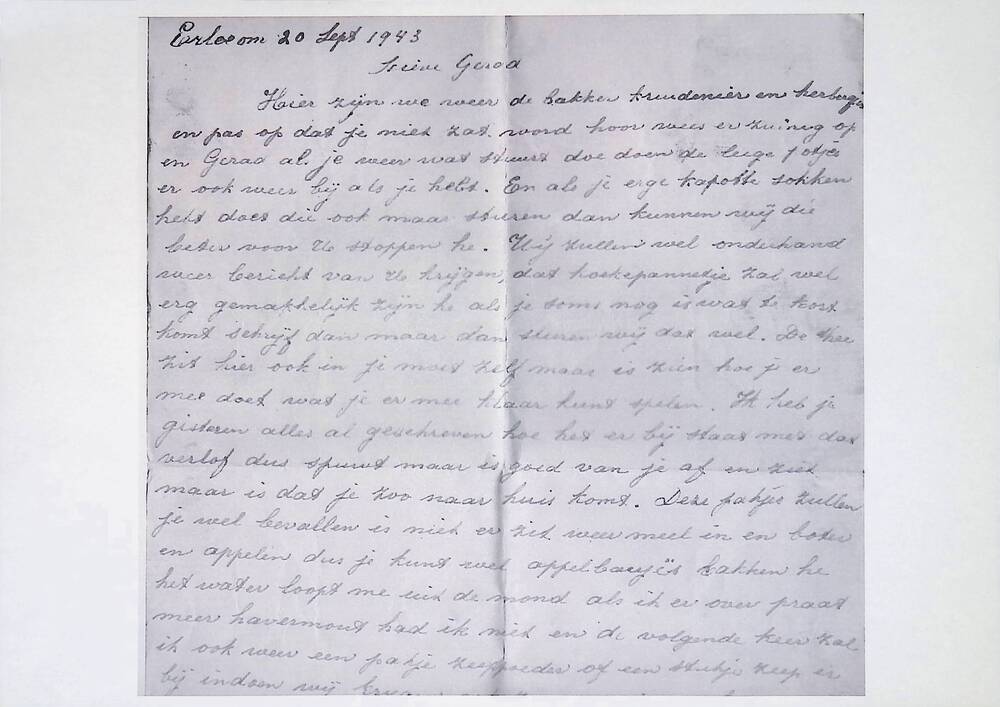 Erlecom 20 Sept 1943
Lieve Gerad
Hier zijn we weer de bakker kruidenier en herbergier
en pas op dat je niet zat word hoor wees er zuinig op
en Gerad al. je weer wat stuurt doe doen de lege potjes
er ook weer bij als je hebt. En als je erge kapotte sokken
hebt doet die ook maar sturen dan kunnen wij die
beter voor U stoppen he. Wij zullen wel onderhand
weer bericht van U krijgen, dat koekepannetje zal wel
erg gemakkelijk zijn he als je soms nog is wat te kort
komt schrijf dan maar dan sturen wij dat wel. De thee
zit hier ook in je moet zelf maar is zien hoe je er
mee doet wat je er mee klaar kunt spelen. Ik heb je
gisteren alles al geschreven hoe het er bij staat met dat
verlof dus spuwt maar is goed van je af en ziet
maar is dat je zoo naar huis komt. Deze pakjes zullen
je wel bevallen is niet er zit weer meel in en boter
en appelen dus je kunt wel appelbacyës bakken he
het water loopt me uit de mond als ik er over praat
meer havermout had ik niet en de volgende keer zal
ik ook weer een pakje zeeppoeder of een stukje zeep er
bij indoen wij